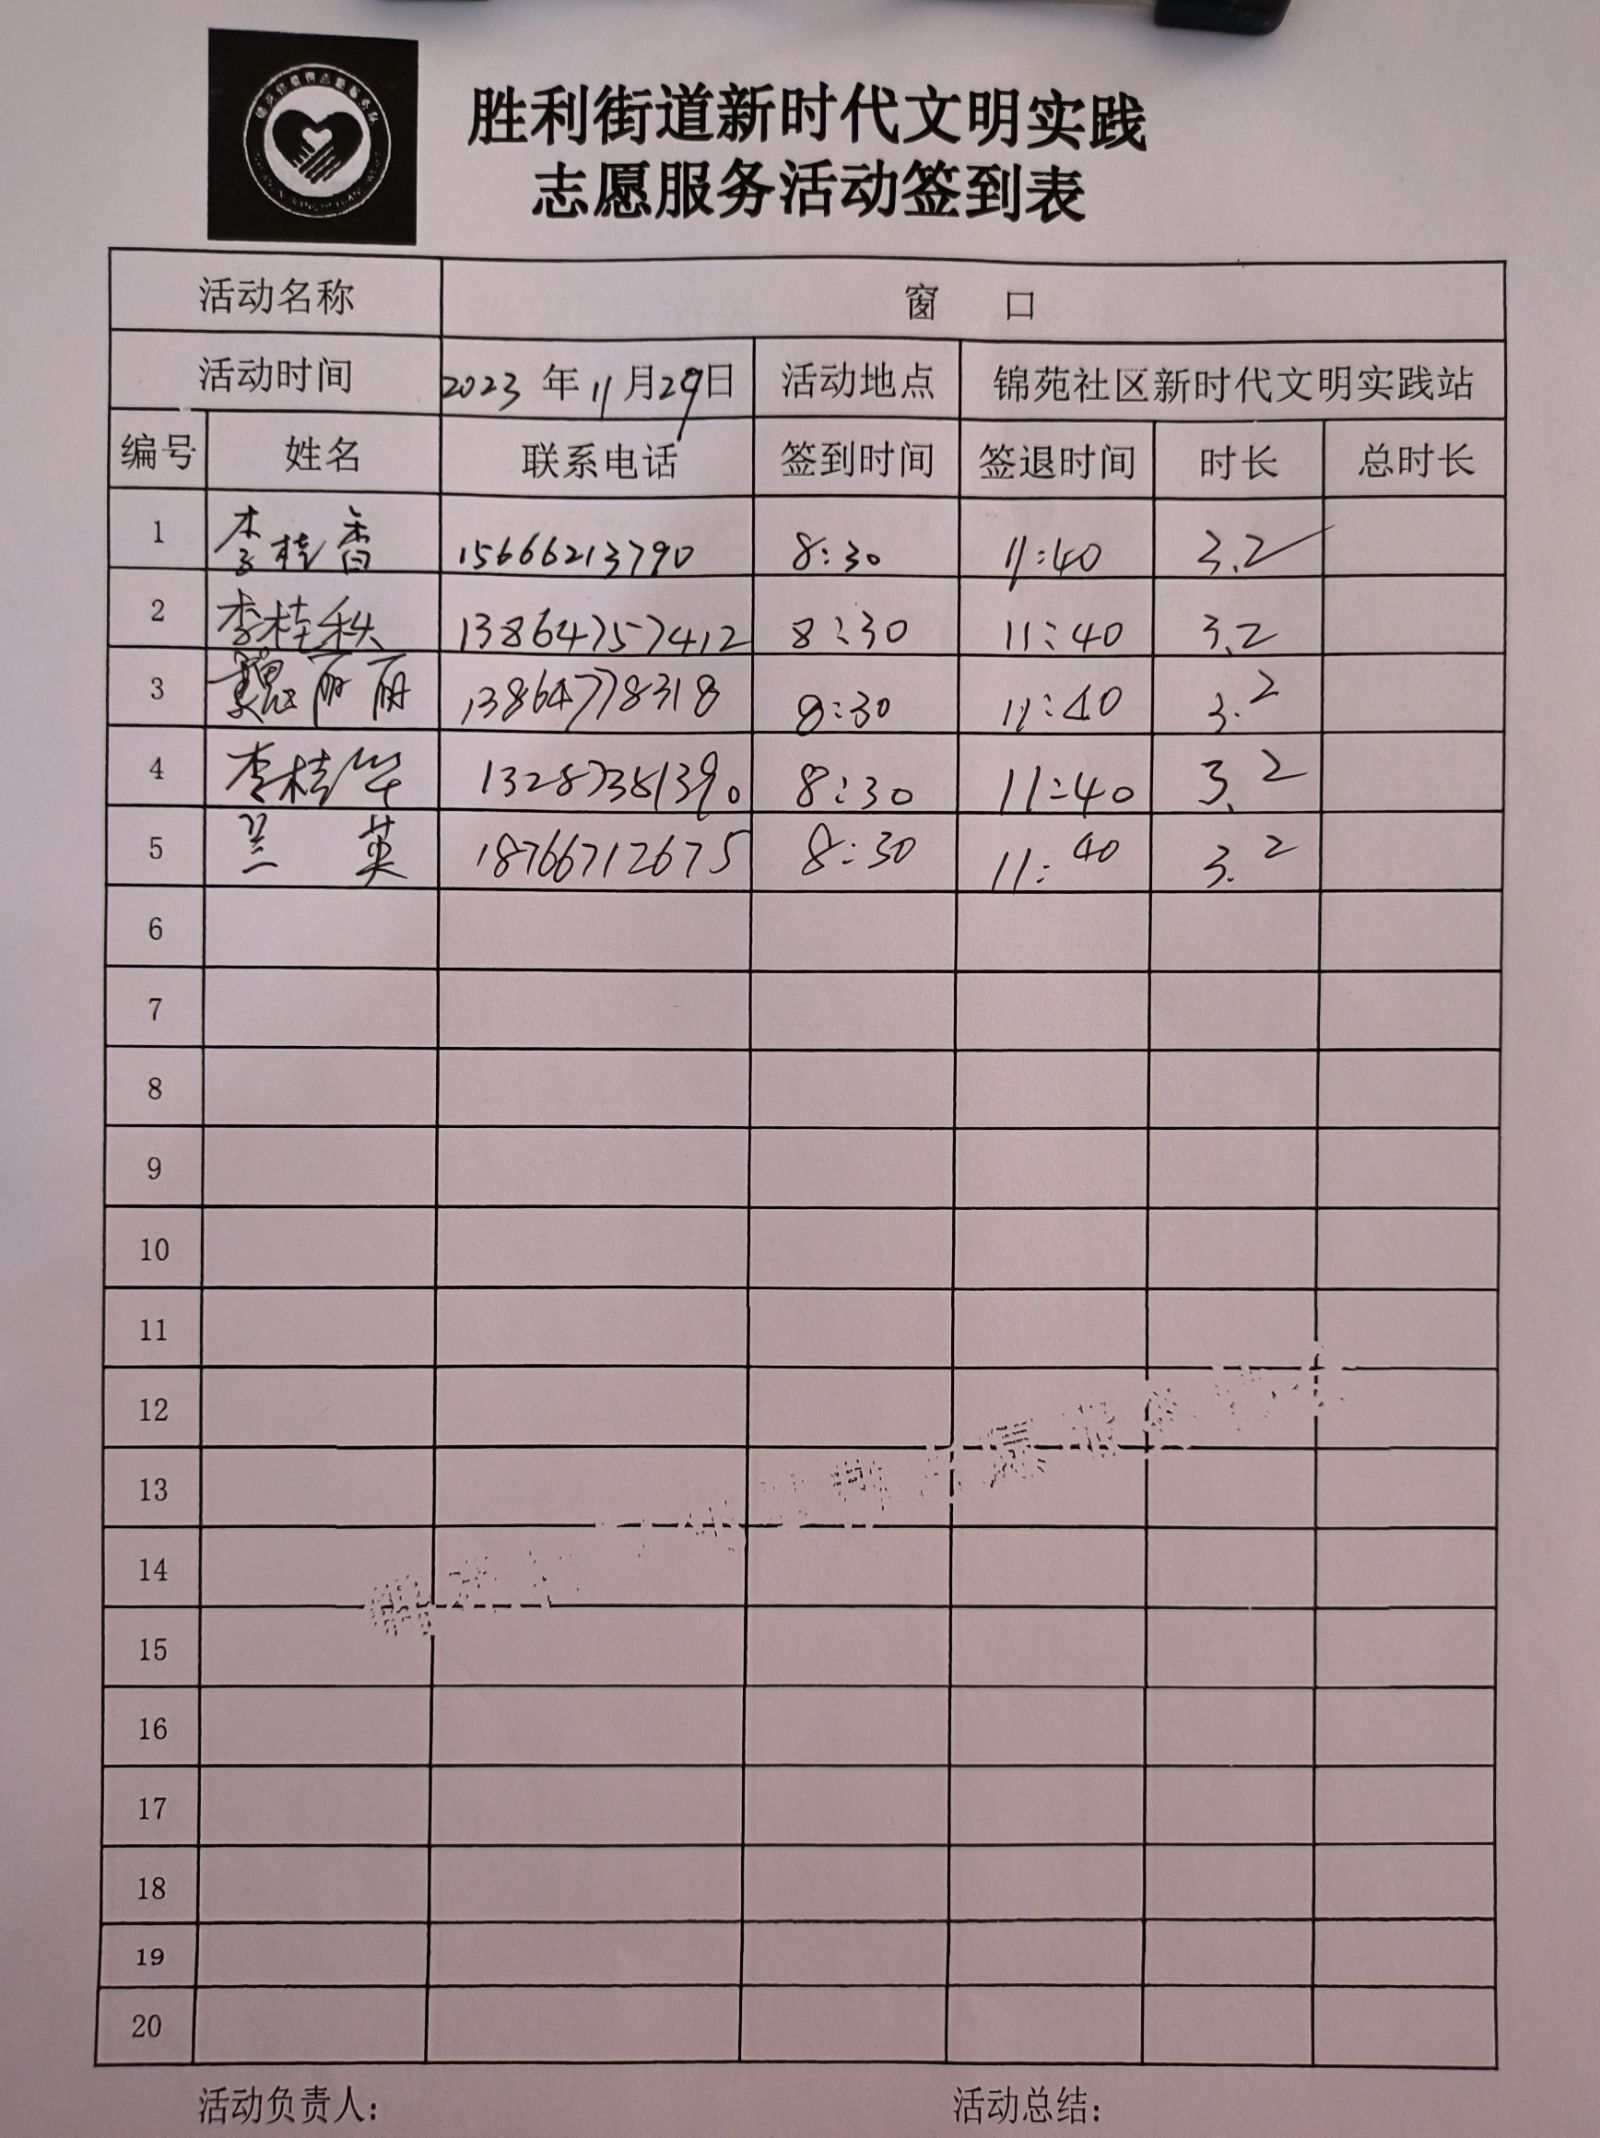 胜利街道新时代文明实践
志愿服务活动签到表
活动名称 窗 口
活动时间 2023 年 11 月 29 日 活动地点 锦苑社区新时代文明实践站
编号 姓名 联系电话 签到时间 签退时间 时长 总时长
1 李桂香 15666213790 8:30 11:40 3.2
2 李桂秋 13864757412 8:30 11:40 3.2
3 魏丽丽 13864778318 8:30 11:40 3.2
4 李桂华 13287381390 8:30 11:40 3.2
5 兰英 18766712675 8:30 11:40 3.2
6
7
8
9
10
11
12
13
14
15
16
17
18
19
20
活动负责人: 活动总结: